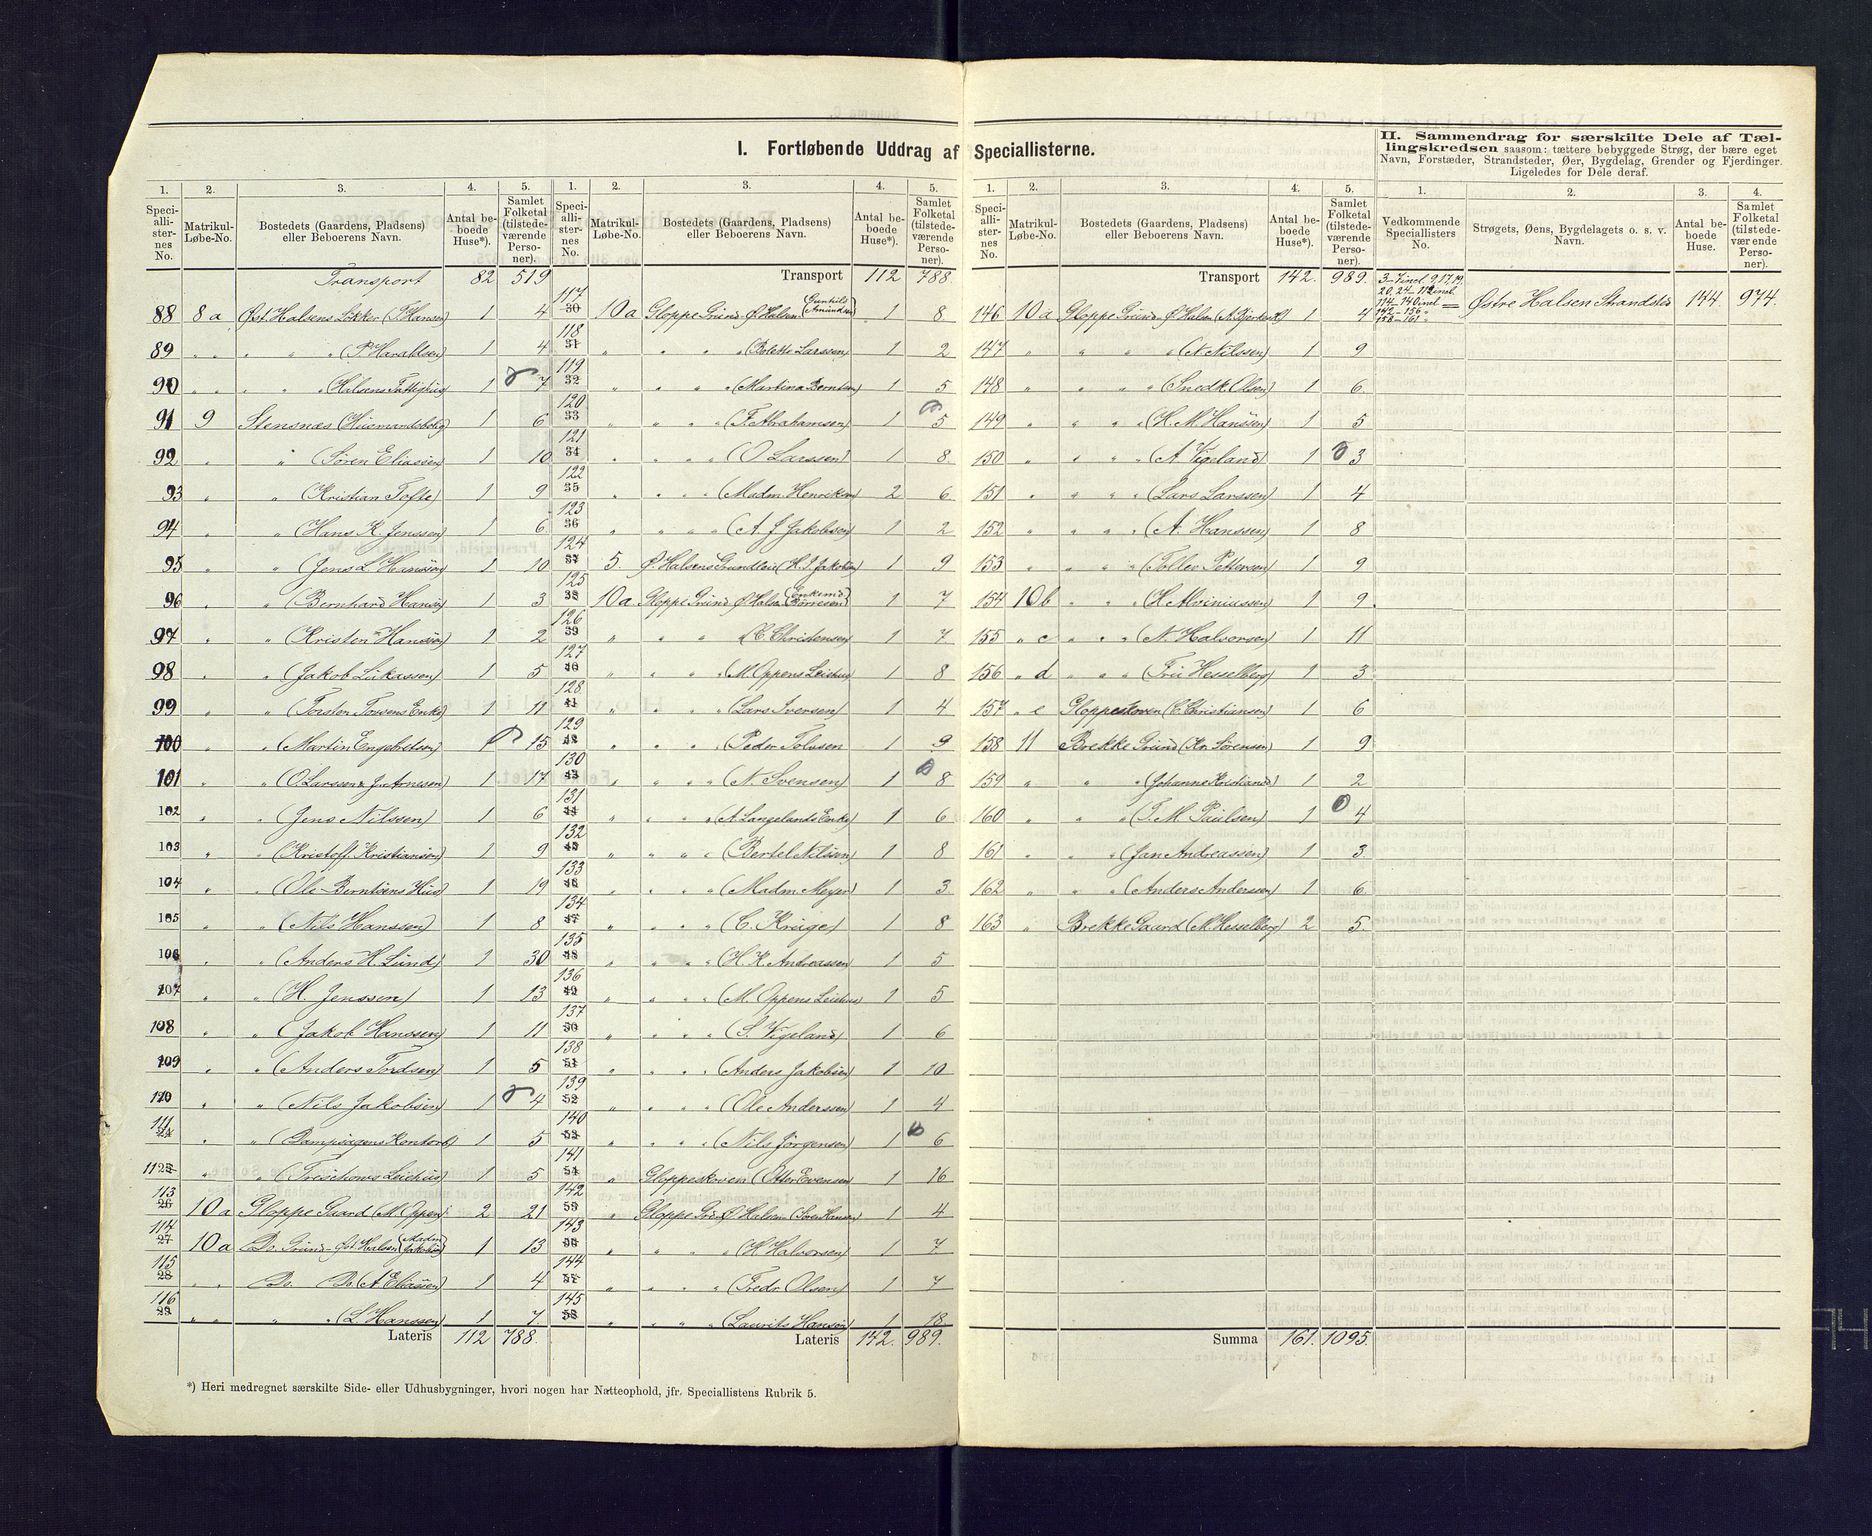 I. Fortløbende Uddrag af Speciallisterne.
II. Sammendrag for særskilte Dele af Tællingskredsen saasom: tættere bebyggede Strøg, der bære eget
Navn, Forstæder, Strandsteder, Øer, Bygdelag, Grender og Fjerdinger.
Ligeledes for Dele deraf.
1. 2. 3. 4. 5.
Speciallisternes No. Matrikul-Løbe-No. Bostedets (Gaardens, Pladsens) eller Beboerens Navn. Antal beboede Huse*). Samlet Folketal (tilstedeværende Personer).
Transport 82 519
88 8a Øst. Halsens Løkker (T. Hansen) 1 4
89 " " " " (P. Haraldsen) 1 4
90 " " " " (Halsens Fattighus) 1 7
91 9 Stensnæs (Husmandsbolig) 1 6
92 " " (Søren Eliassen) 1 10
93 " " (Kristian Tofte) 1 9
94 " (Hans K. Jenssen) 1 6
95 " " (Jens L. Hanssen) 1 10
96 " " (Bernhard Hansen) 1 3
97 " " (Kristen Hanssen) 1 2
98 " " (Jakob Lukassen) 1 5
99 " " (Torsten Tovsens Enke) 1 11
100 " " (Martin Engebretsen) 1 15
101 " " (O. Larssen & J. Arnesen) 1 17
102 " " (Jens Nilssen) 1 6
103 " " (Kristoff. Kristiansen) 1 9
104 " " (Ole Berntsens Hus) 1 19
105 " (Nils Hanssen) 1 8
106 " " (Anders H. Lund) 1 30
107 " " (H. Jenssen) 1 13
108 " " (Jakob Hanssen) 1 11
109 " " (Anders Tordsen) 1 5
110 " " (Nils Jakobsen) 1 4
111 " " (Dampsagens Kontorb) 1 5
112 " " (Treschows Leiehus) 1 5
113 10a Gloppe Gaard (M. Oppen) 2 21
114 10a Do. Grund - Øst Halsen (Madm Jakobsen) 1 13
115 " " Do. Do. (A. Eliassen) 1 4
116 " " " " (L. Hanssen) 1 7
Lateris 112 788.
*) Heri medregnet særskilte Side- eller Udhusbygninger, hvori nogen har Natteophold, jfr. Speciallistens Rubrik 5.
1. 2. 3. 4. 5.
Speciallisternes No. Matrikul-Løbe-No. Bostedets (Gaardens, Pladsens) eller Beboerens Navn. Antal beboede Huse*). Samlet Folketal (tilstedeværende Personer).
Transport 112 788.
117 10a Gloppe Grund Ø Halsen (Gunhild Amundsen) 1 8
118 " " " " (Bolette Larssen) 1 2
119 " " " " (Martina Berntsen) 1 5
120 " " " " (F. Abrahamsen) 1 5
121 " " " " (O Larssen) 1 8
122 " " " " (Madm Henriksen) 2 6
123 " " " " (A. J. Jakobsen) 1 2
124 5. Ø. Halsens Grundleie (H. J. Jakobsen) 1 9
125 10a Gloppe Grund Ø Halsen (Enkemd Børresen) 1 7
126 " " " " (C. Christensen) 1 7
127 " " " " (M. Oppens Leiehus) 1 8
128 " " " " (Lars Iversen) 1 4
129 " " " " (Peder Tolusen 1 9
130 " " " " (N. Svensen) 1 8
131 " " " " (A. Langelands Enke) 1 6
132 " " " " (Bertel Nilssen) 1 8
133 " " " " (Madm Meyer) 1 3
134 " " " " (C. Krüge) 1 8
135 " " " " (H. K. Andreassen) 1 5
136 " " " " (M. Oppens Leiehus) 1 5
137 " " " " (S. Vigeland) 1 6
138 " " " " (Anders Jakobsen) 1 10
139 " " " " (Ole Anderssen) 1 4
140 " " " " (Nils Jörgensen) 1 6
141 " Gloppeskoven (Otter Evensen) 1 16
142 " Gloppe Grund Ø Halsen (Søren Hansen) 1 4
143 " " " " (H. Halvorsen) 1 7
144 " " " " (Fredr. Olsen) 1 7
145 " " " " (Laurits Hansen) 1 18
Lateris 142. 989.
1. 2. 3. 4. 5.
Speciallisternes No. Matrikul-Løbe-No. Bostedets (Gaardens, Pladsens) eller Beboerens Navn. Antal beboede Huse*). Samlet Folketal (tilstedeværende Personer).
Transport 142. 989.
146 10a Gloppe Grund Ø Halsen 1 4
147 " " " " (N. Nilssen) 1 9
148 " " " " (Snedk Olsen) 1 6.
149 " " " " (H. M. Hanssen) 1 5
150 " " " " (A. Vigeland) 1 3
151 " " " " (Lars Larssen) 1 4
152 " " " " (A. Hanssen) 1 8
153 " " " " (Tollev Pettersen) 1 9
154 10b " " " (H. Alviniussen) 1 9.
155 " c " " " (N. Halvorsen) 1 11
156 " d " " " (Fru Hesselberg) 1 3
157 " e Gloppeskoven (C. Christiansen) 1 6
158 11 Brekke Grund (Kr. Sørensen) 1 9
159 " " " (Johanne Kristiansd) 1 2
160 " " " (T. M. Paulsen) 1 4
161 " " " (Jan Andreassen) 1 3
162 " " " (Anders Anderssen) 1 6
163 " Brekke Gaard (M. Hesselberg) 2 5.
Summa 161. 1095.
1. 2. 3. 4.
Vedkommende Speciallisters No. Strøgets, Øens, Bygdelagets o. s. v. Navn. Antal beboede Huse. Samlet Folketal (tilstedeværende Personer).
3-7 incl 9, 17, 19,
20, 24-112 incl.
114-140 incl =
142-156 "
158-161 "
Østre Halsen Strandsted 144 974.